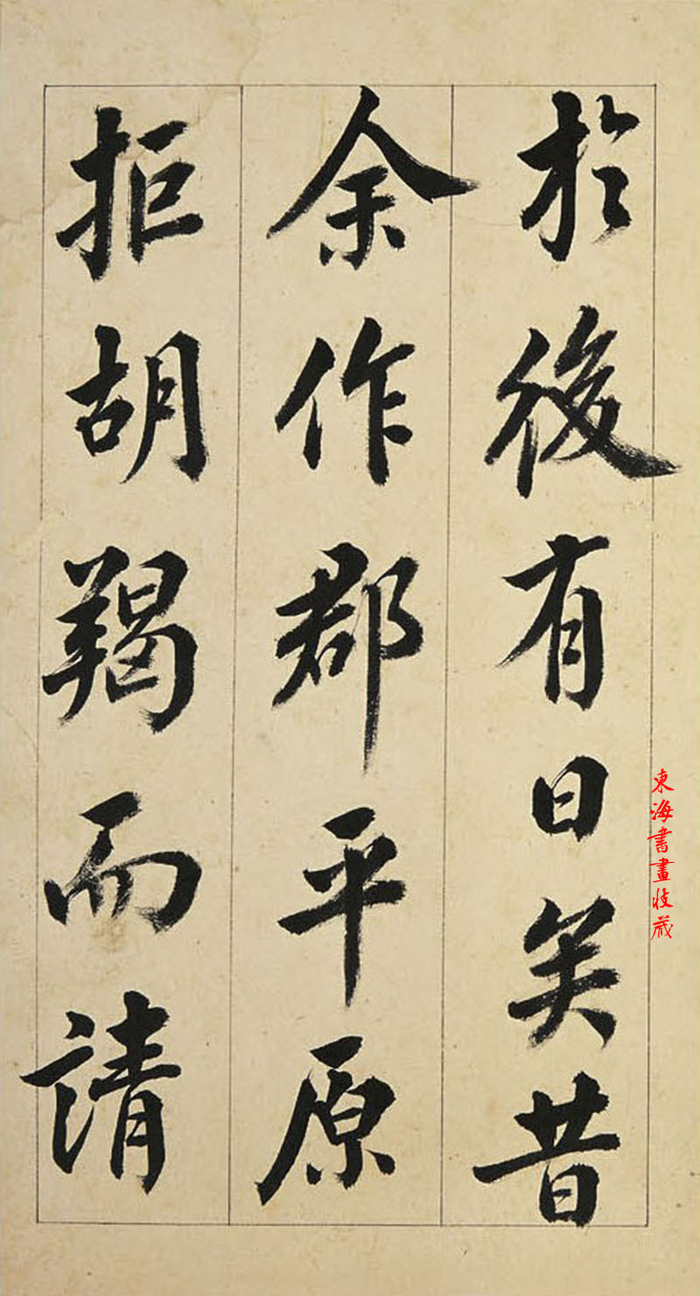 於後有日矣昔
余作郡平原
拒胡羯而請
東海書畫收藏